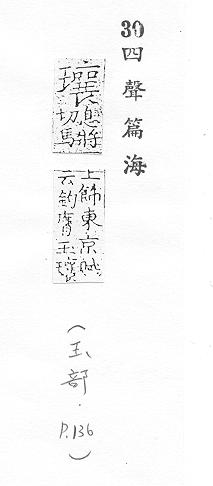 30四聲篇海
瓖
息將
切馬
上飾東京賦
云鈎膺玉瓖
(玉部.P.136)